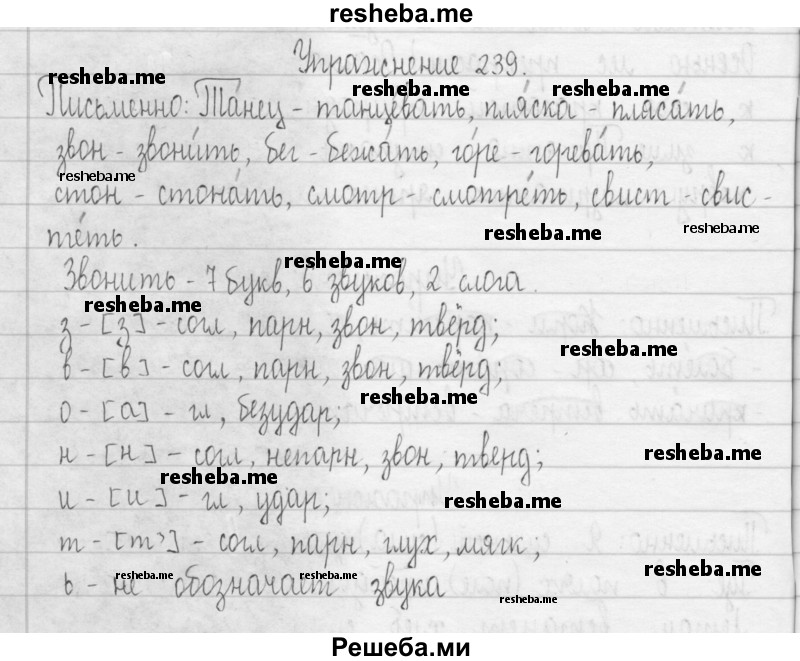 resheba.me
Упражнение 239.
resheba.me
resheba.me
resheba.me
Письменно: Танец - танцевать, пляска - плясать,
звон - звонить, бег - бежать, горе - горевать,
resheba.me
стон - стонать, смотр - смотреть, свист - свис-
resheba.me
resheba.me
теть.
resheba.me
Звонить - 7 букв, 6 звуков, 2 слога.
resheba.me
з - [з] - согл, парн, звон, твёрд;
resheba.me
в - [в] - согл, парн, звон, твёрд;
resheba.me
о - [а] - гл, безудар;
н - [н] - согл, непарн, звон, тверд;
resheba.me
resheba.me
и - [и] - гл, удар;
resheba.me
т - [т'] - согл, парн, глух, мягк;
resheba.me
ь - не обозначает звука
resheba.me
resheba.me
resheba.me
Решеба.ми